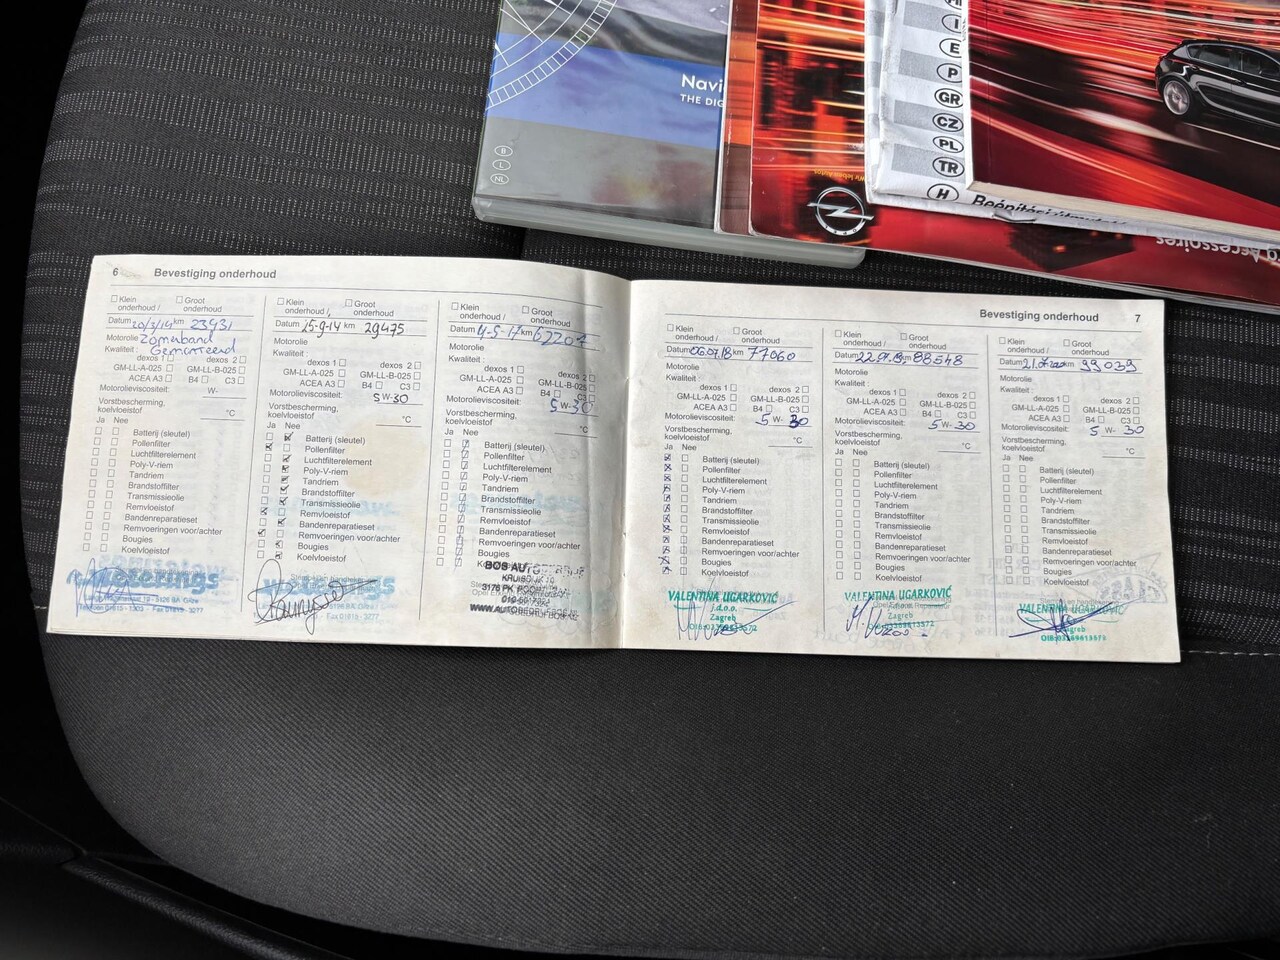 Navi
THE DIG
B
L
NL
Wir leben Autos
I
E
P
GR
CZ
PL
TR
H
Accessoires
6 Bevestiging onderhoud
Klein onderhoud / Groot onderhoud
Datum 20/3/14 km 23931
Motorolie Zomerband
Kwaliteit: Gemonteerd
dexos 1 dexos 2
GM-LL-A-025 GM-LL-B-025
ACEA A3 B4 C3
Motorolieviscositeit: W-
Vorstbescherming, koelvloeistof °C
Ja Nee
Batterij (sleutel)
Pollenfilter
Luchtfilterelement
Poly-V-riem
Tandriem
Brandstoffilter
Transmissieolie
Remvloeistof
Bandenreparatieset
Remvoeringen voor/achter
Bougies
Koelvloeistof
Klein onderhoud / Groot onderhoud
Datum 15-9-14 km 29475
Motorolie
Kwaliteit:
dexos 1 dexos 2
GM-LL-A-025 GM-LL-B-025
ACEA A3 B4 C3
Motorolieviscositeit: 5 W-30
Vorstbescherming, koelvloeistof °C
Ja Nee
Batterij (sleutel)
Pollenfilter
Luchtfilterelement
Poly-V-riem
Tandriem
Brandstoffilter
Transmissieolie
Remvloeistof
Bandenreparatieset
Remvoeringen voor/achter
Bougies
Koelvloeistof
Klein onderhoud / Groot onderhoud
Datum 4-5-17 km 62201
Motorolie
Kwaliteit:
dexos 1 dexos 2
GM-LL-A-025 GM-LL-B-025
ACEA A3 B4 C3
Motorolieviscositeit: 5 W-30
Vorstbescherming, koelvloeistof °C
Ja Nee
Batterij (sleutel)
Pollenfilter
Luchtfilterelement
Poly-V-riem
Tandriem
Brandstoffilter
Transmissieolie
Remvloeistof
Bandenreparatieset
Remvoeringen voor/achter
Bougies
BOS AUTO
Bevestiging onderhoud 7
Klein onderhoud / Groot onderhoud
Datum 06.07.18 km 77060
Motorolie
Kwaliteit:
dexos 1 dexos 2
GM-LL-A-025 GM-LL-B-025
ACEA A3 B4 C3
Motorolieviscositeit: 5 W-30
Vorstbescherming, koelvloeistof °C
Ja Nee
Batterij (sleutel)
Pollenfilter
Luchtfilterelement
Poly-V-riem
Tandriem
Brandstoffilter
Transmissieolie
Remvloeistof
Bandenreparatieset
Remvoeringen voor/achter
Bougies
Koelvloeistof
VALENTINA UGARKOVIĆ
j.d.o.o.
Zagreb
Klein onderhoud / Groot onderhoud
Datum km 88548
Motorolie
Kwaliteit:
dexos 1 dexos 2
GM-LL-A-025 GM-LL-B-025
ACEA A3 B4 C3
Motorolieviscositeit: 5 W-30
Vorstbescherming, koelvloeistof °C
Ja Nee
Batterij (sleutel)
Pollenfilter
Luchtfilterelement
Poly-V-riem
Tandriem
Brandstoffilter
Transmissieolie
Remvloeistof
Bandenreparatieset
Remvoeringen voor/achter
Bougies
Koelvloeistof
VALENTINA UGARKOVIĆ
Zagreb
Klein onderhoud / Groot onderhoud
Datum km 99039
Motorolie
Kwaliteit:
dexos 1 dexos 2
GM-LL-A-025 GM-LL-B-025
ACEA A3 B4 C3
Motorolieviscositeit: 5 W-30
Vorstbescherming, koelvloeistof °C
Ja Nee
Batterij (sleutel)
Pollenfilter
Luchtfilterelement
Poly-V-riem
Tandriem
Brandstoffilter
Transmissieolie
Remvloeistof
Bandenreparatieset
Remvoeringen voor/achter
Bougies
Koelvloeistof
VALENTINA UGARKOVIĆ
Zagreb